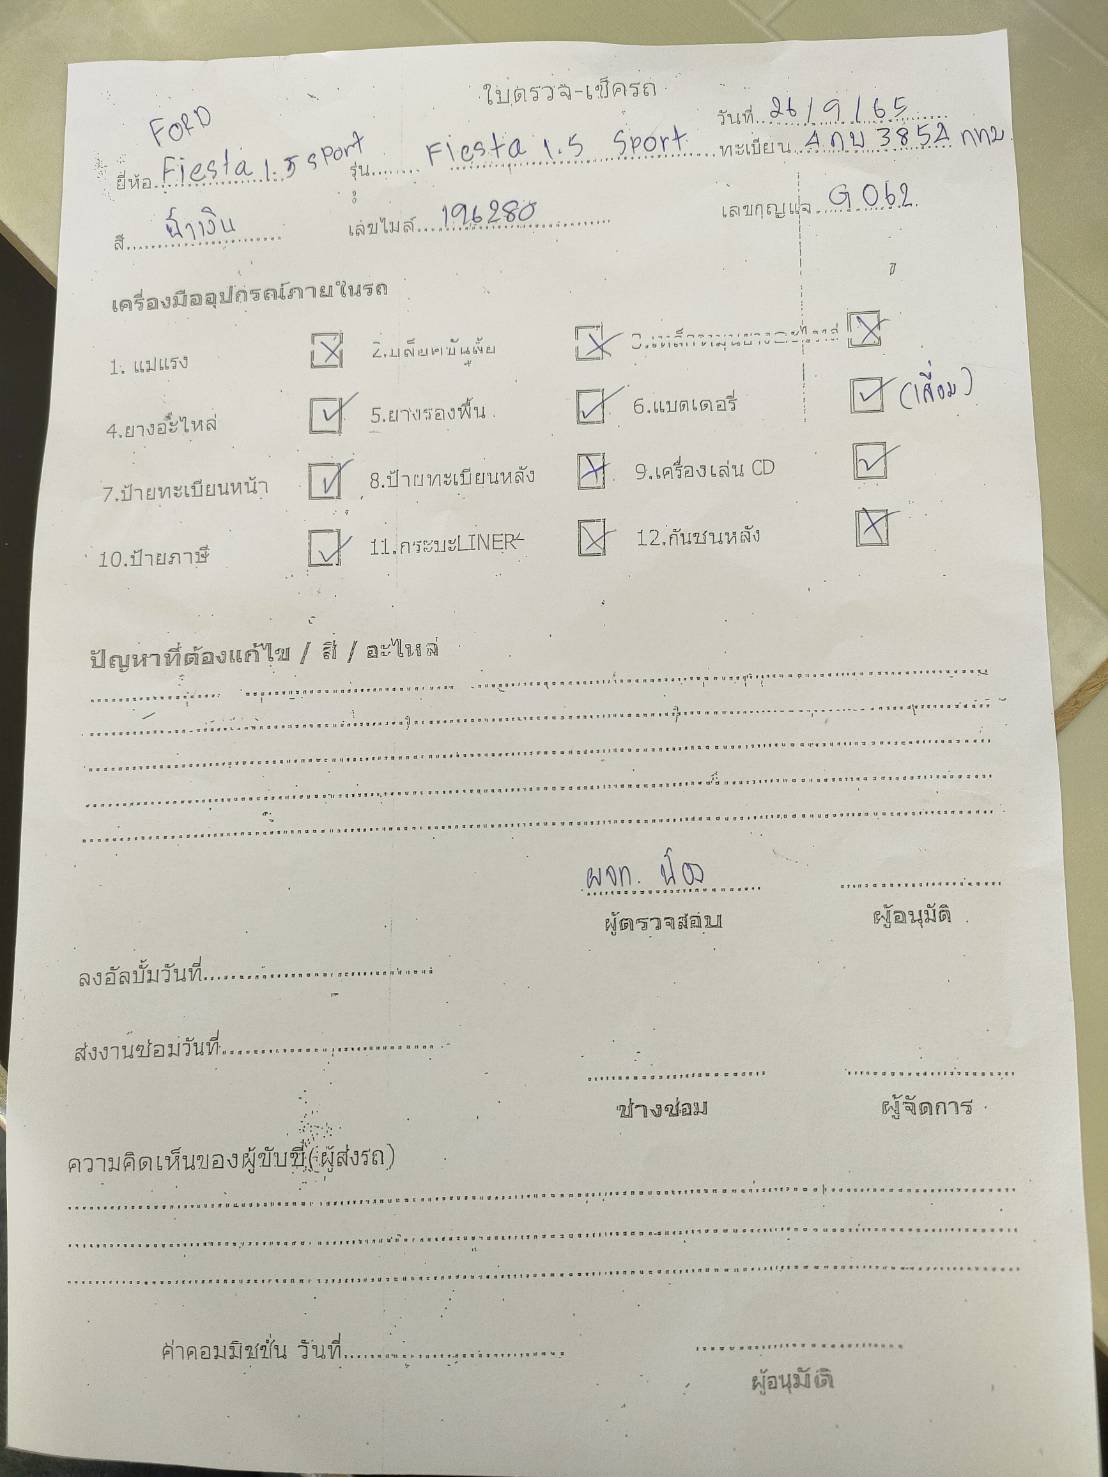 ใบตรวจ-เช็ครถ
FORD
วันที่ 26/9/65
ยี่ห้อ Fiesta 1.5 sport รุ่น Fiesta 1.5 Sport ทะเบียน 4กบ 3852 กทม
สี น้ำเงิน เลขไมล์ 196280 เลขกุญแจ G062
เครื่องมืออุปกรณ์ภายในรถ
1. แม่แรง ☒ 2. ☒ 3. ☒
4.ยางอะไหล่ ☑ 5.ยางรองพื้น ☑ 6.แบตเตอรี่ ☑ (เสื่อม)
7.ป้ายทะเบียนหน้า ☑ 8.ป้ายทะเบียนหลัง ☒ 9.เครื่องเล่น CD ☑
10.ป้ายภาษี ☑ 11.กระบะLINER ☒ 12.กันชนหลัง ☒
ปัญหาที่ต้องแก้ไข / สี / อะไหล่
ผจก. น้อง
ผู้ตรวจสอบ ผู้อนุมัติ
ลงอัลบั้มวันที่
ส่งงานซ่อมวันที่
ช่างซ่อม ผู้จัดการ
ความคิดเห็นของผู้ขับขี่(ผู้ส่งรถ)
ค่าคอมมิชชั่น วันที่
ผู้อนุมัติ